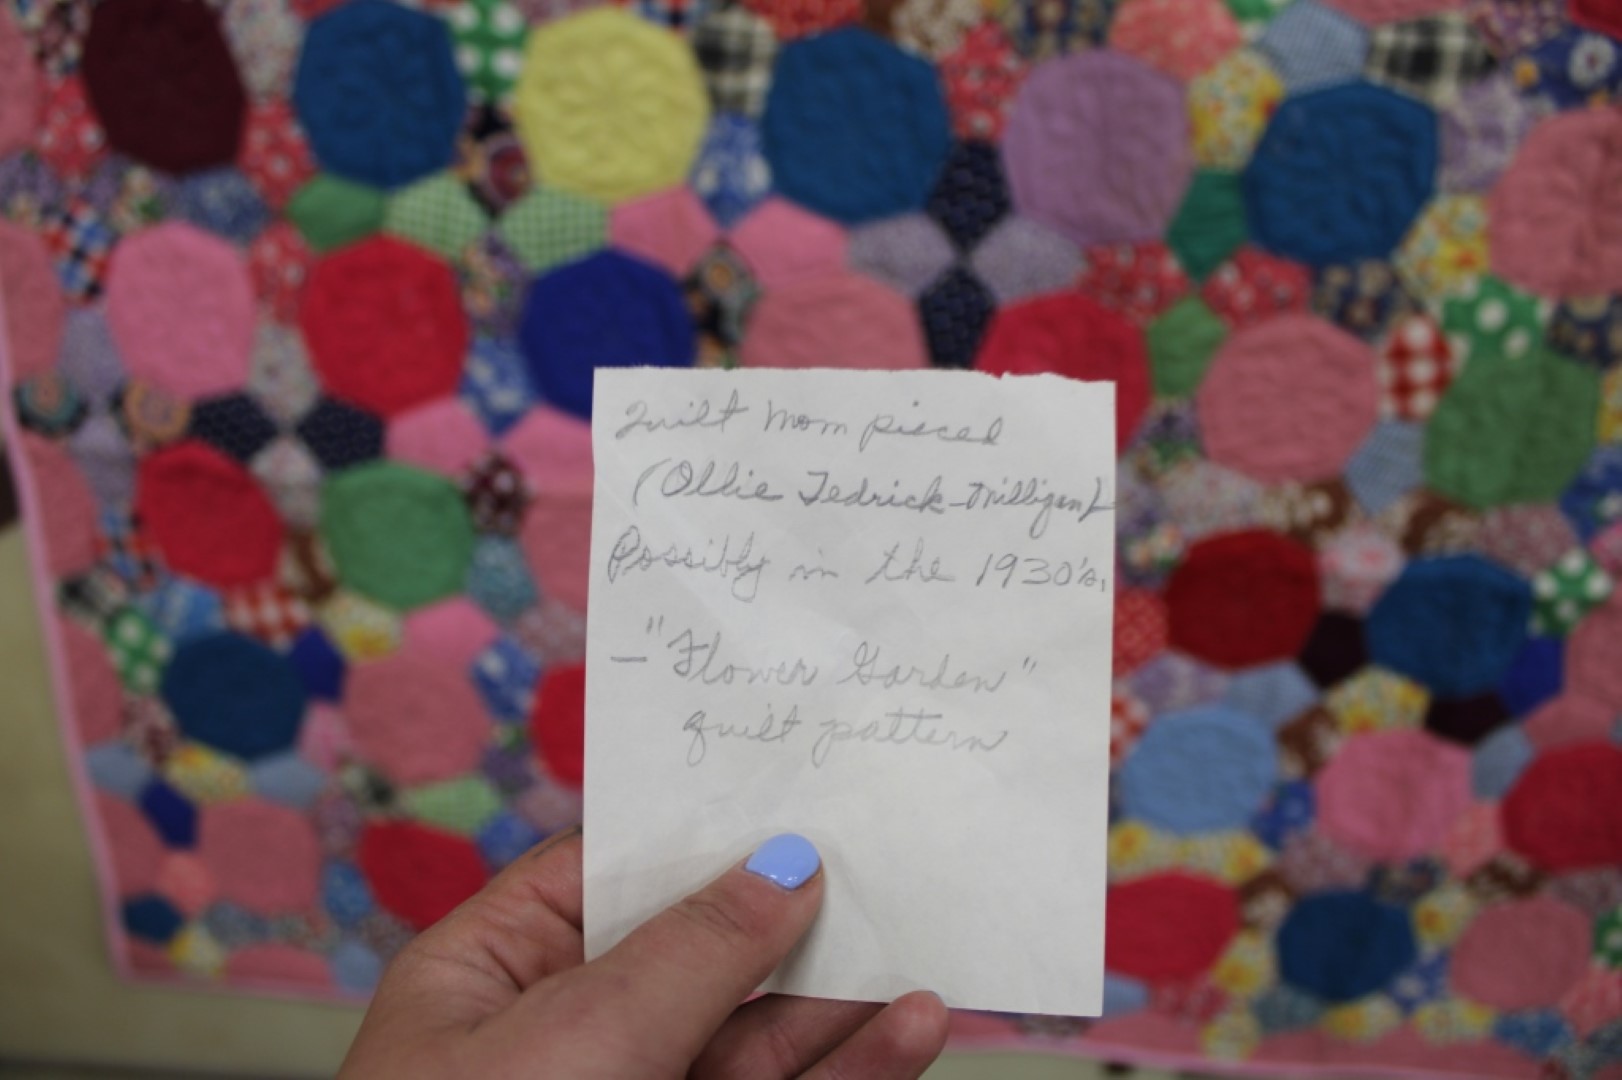 Quilt Mom pieced
(Ollie Tedrick-Milligan)
Possibly in the 1930's.
— "Flower Garden"
quilt pattern